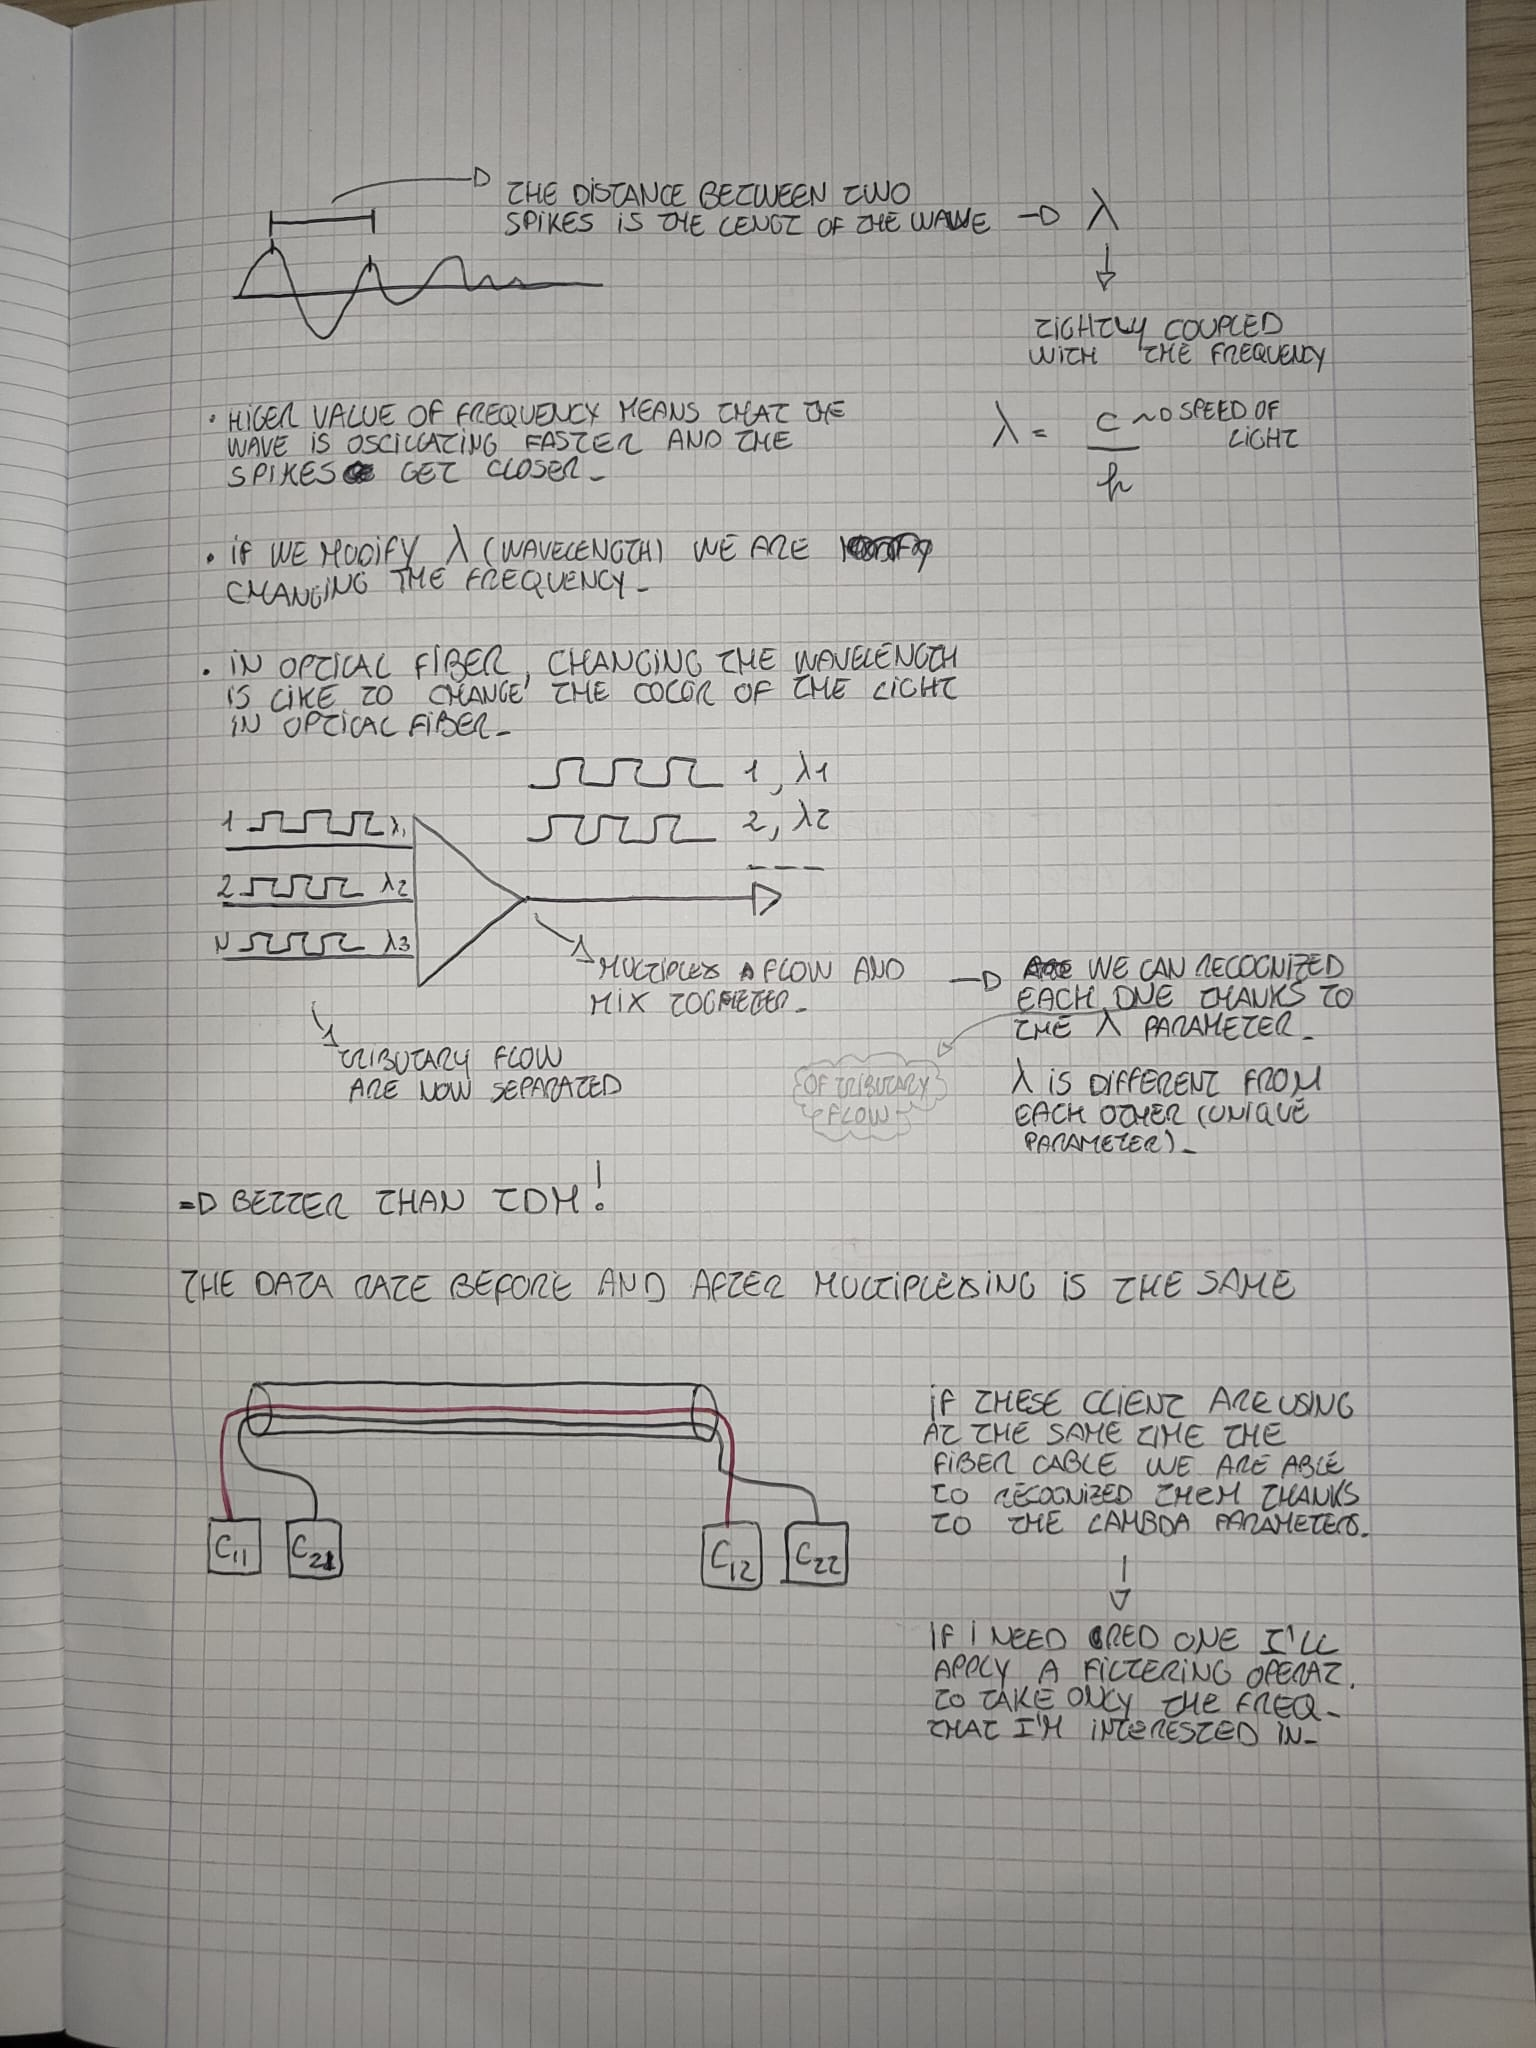 THE DISTANCE BETWEEN TWO
SPIKES IS THE LENGT OF THE WAVE → λ
TIGHTLY COUPLED
WITH THE FREQUENCY
• HIGER VALUE OF FREQUENCY MEANS THAT THE
WAVE IS OSCILLATING FASTER AND THE
SPIKES GET CLOSER.
λ = c ~> SPEED OF
LIGHT
f
• IF WE MODIFY λ (WAVELENGTH) WE ARE
CHANGING THE FREQUENCY.
• IN OPTICAL FIBER, CHANGING THE WAVELENGTH
IS LIKE TO CHANGE THE COLOR OF THE LIGHT
IN OPTICAL FIBER.
1, λ1
2, λ2
1 λ1
2 λ2
N λ3
MULTIPLEX A FLOW AND
MIX TOGHETER.
→ WE CAN RECOGNIZED
EACH ONE THANKS TO
THE λ PARAMETER.
OF TRIBUTARY
FLOW
TRIBUTARY FLOW
ARE NOW SEPARATED
λ IS DIFFERENT FROM
EACH OTHER (UNIQUE
PARAMETER).
⇒ BETTER THAN TDM!
THE DATA RATE BEFORE AND AFTER MULTIPLEXING IS THE SAME
C11 C21 C12 C22
IF THESE CLIENT ARE USING
AT THE SAME TIME THE
FIBER CABLE WE ARE ABLE
TO RECOGNIZED THEM THANKS
TO THE LAMBDA PARAMETERS.
IF I NEED RED ONE I'LL
APPLY A FILTERING OPERAT.
TO TAKE ONLY THE FREQ.
THAT I'M INTERESTED IN.